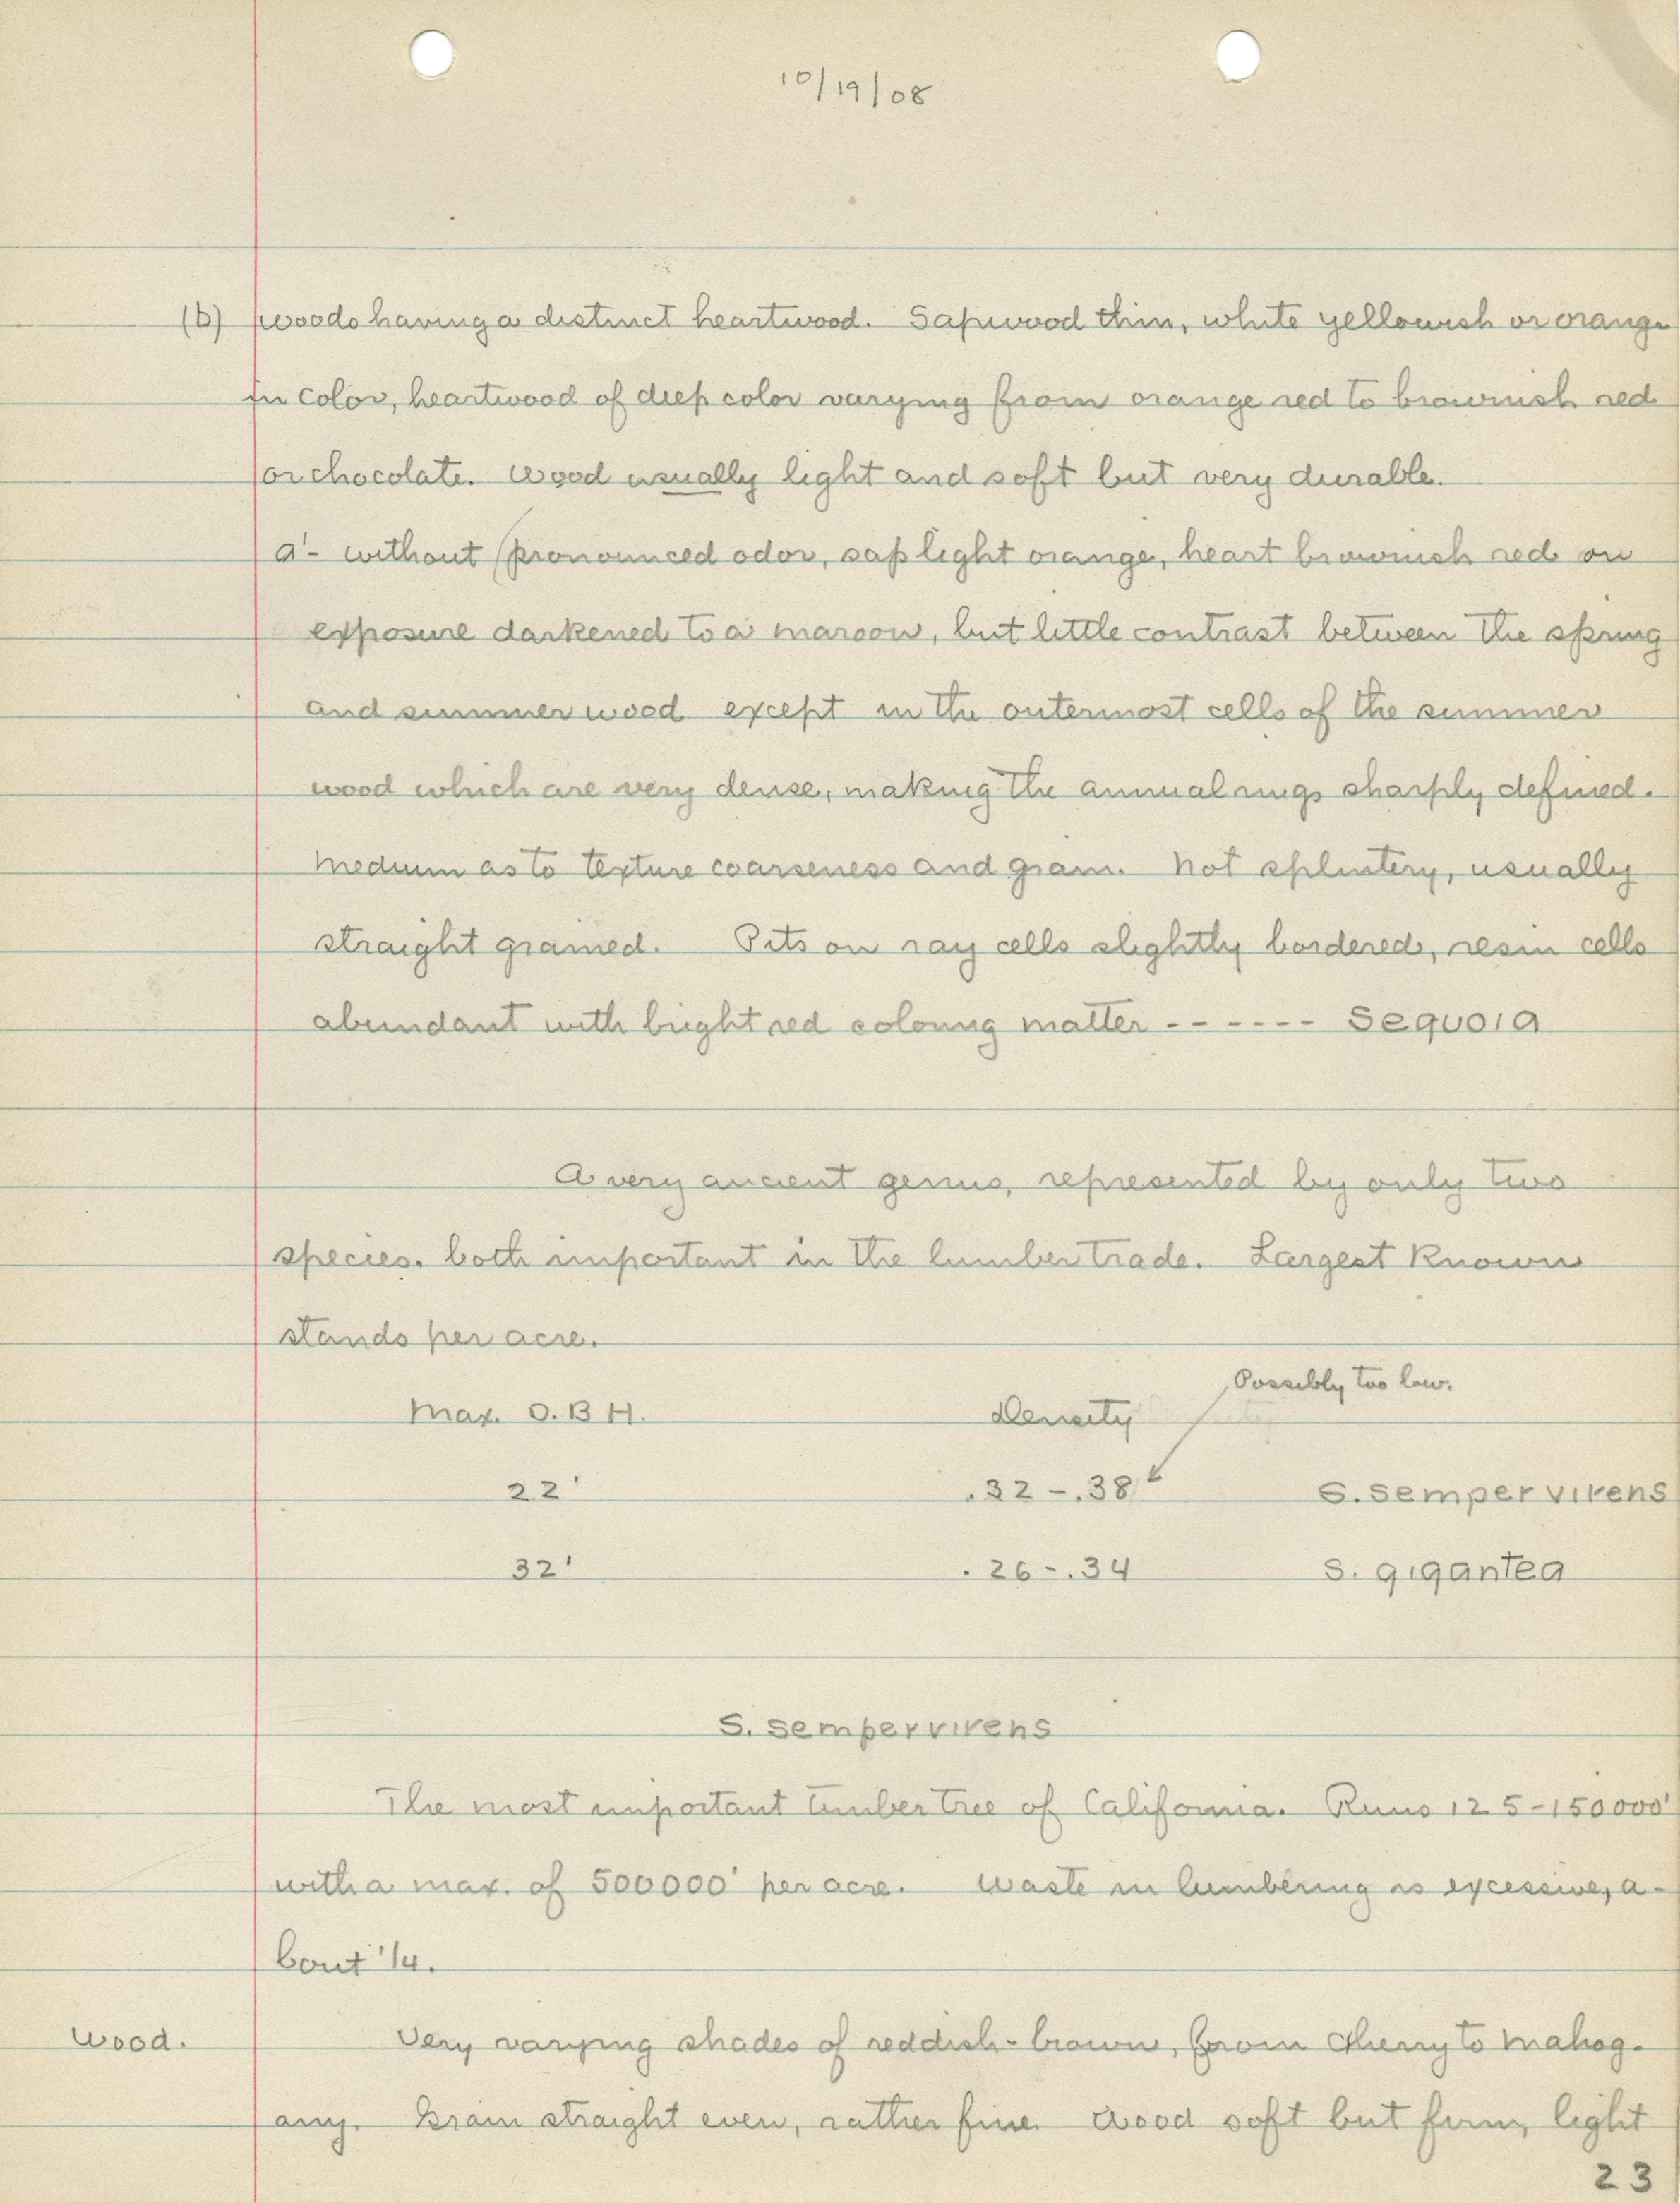 10/19/08
(b) Woods having a distinct heartwood. Sapwood thin, white yellowish or orange
in color, heartwood of deep color varying from orange red to brownish red
or chocolate. Wood usually light and soft but very durable.
a'- without pronounced odor, sap light orange, heart brownish red on
exposure darkened to a maroon, but little contrast between the spring
and summer wood except in the outermost cells of the summer
wood which are very dense, making the annual rings sharply defined.
Medium as to texture coarseness and grain. Not splintery, usually
straight grained. Pits on ray cells slightly bordered, resin cells
abundant with bright red coloring matter - - - - - - Sequoia
A very ancient genus, represented by only two
species, both important in the lumber trade. Largest known
stands per acre.
Possibly too low.
Max. D.B H. Density
22' .32 - .38 S. sempervirens
32' .26 - .34 S. gigantea
S. sempervirens
The most important timber tree of California. Runs 125-150000'
with a max. of 500000' per acre. Waste in lumbering is excessive, a-
bout 1/4.
Wood. Very varying shades of reddish-brown, from cherry to mahog-
any. Grain straight even, rather fine. Wood soft but firm, light
23